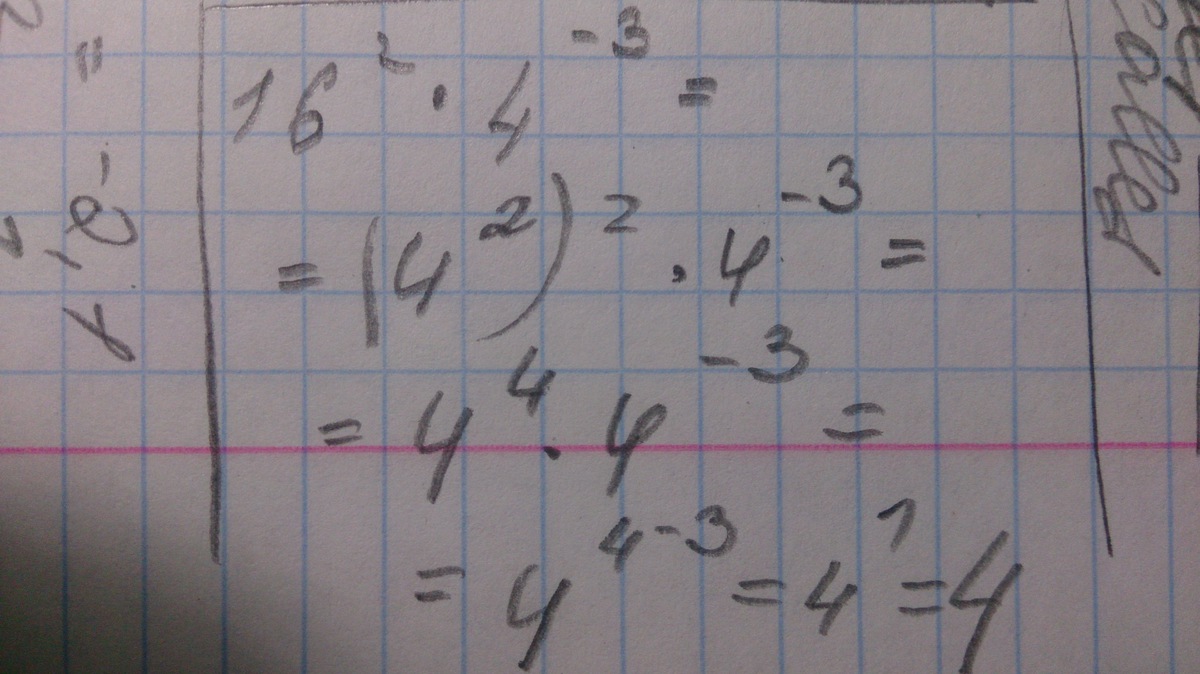 16² · 4⁻³ =
= (4²)² · 4⁻³ =
= 4⁴ · 4⁻³ =
= 4⁴⁻³ = 4¹ = 4